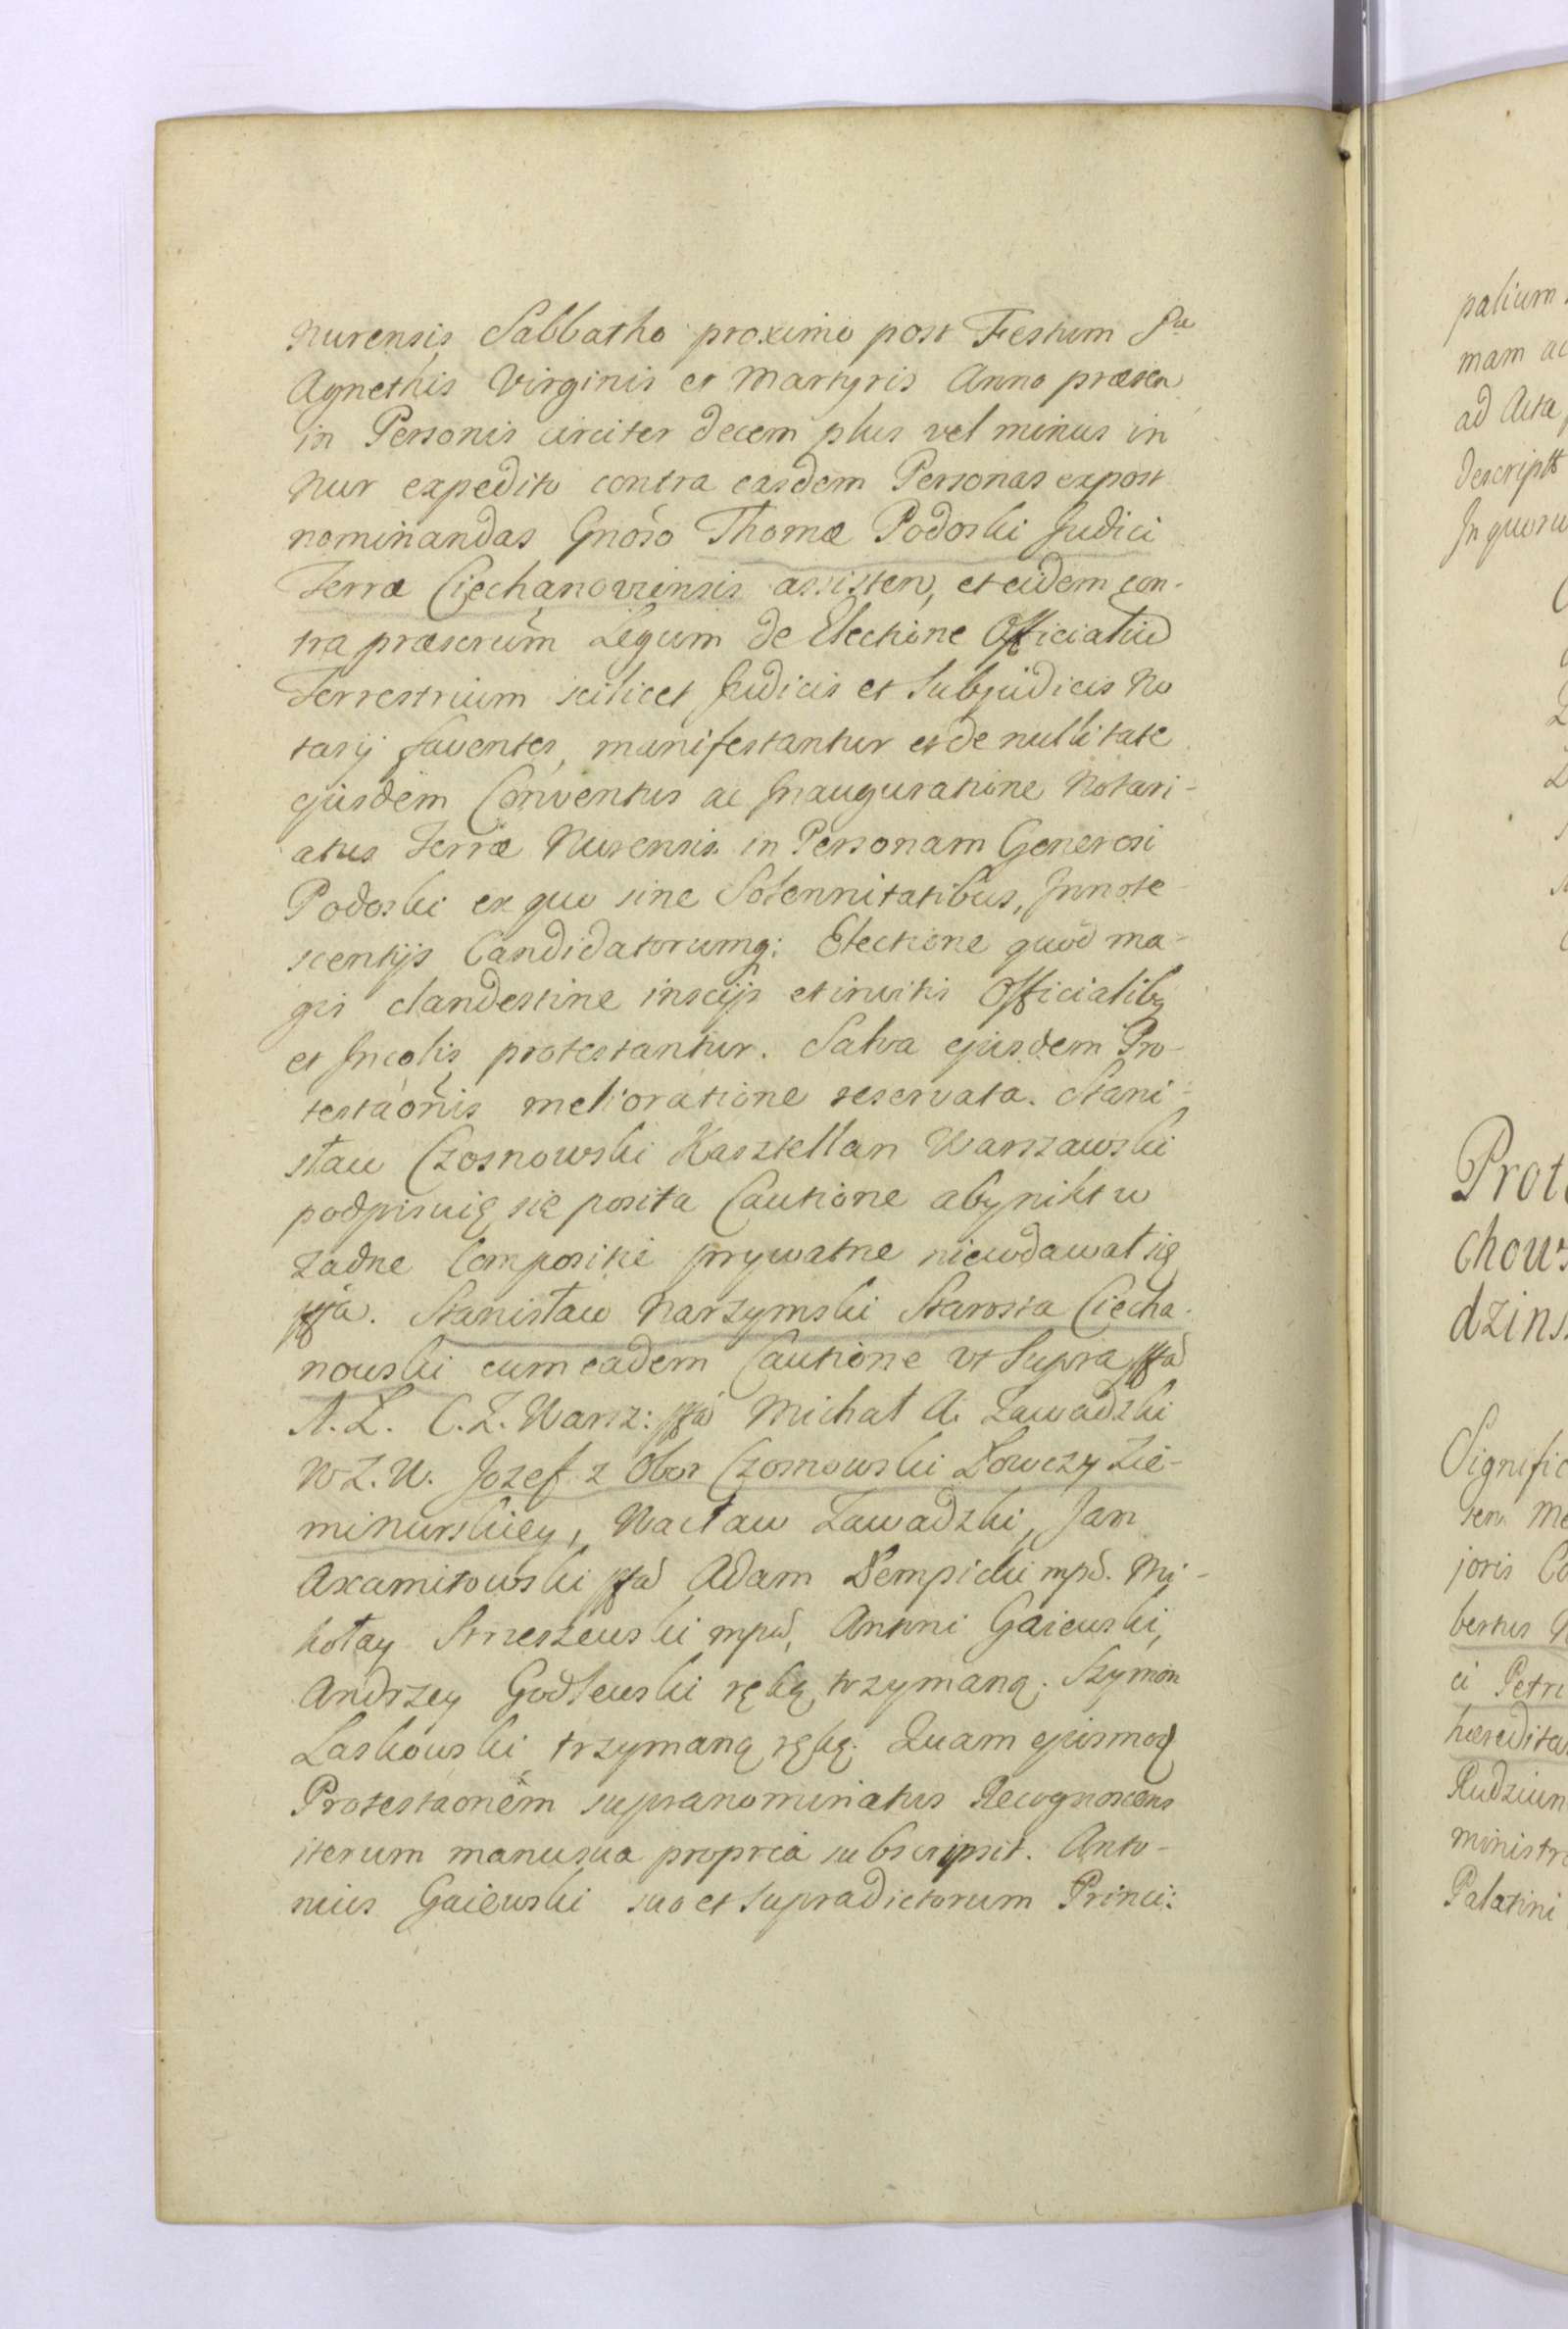 Nurensis Sabbatho proximo post Festum Stae
Agnethis Virginis et Martyris Anno praesen
in Personis circiter decem plus vel minus in
Nur expedito contra easdem Personas expost
nominandas Gnoso Thomæ Podoski Judici
Terræ Ciechanoviensis assisten, et eidem con-
tra præscrum Legum de Electione Officialiu
Terrestrium scilicet Judicis et Subjudicis No
tarij faventes, manifestantur et de nullitate
ejusdem Conventus ac Inauguratione Notari-
atus Terræ Nurensis in Personam Generosi
Podoski ex quo sine Solennitatibus, Innote-
scentijs Candidatorumq: Electione quod ma-
gis clandestine inscijs et invitis Officialibq
et Incolis protestantur. Salva ejusdem Pro-
testaonis melioratione reservata. Stani-
sław Czosnowski Kasztellan Warszawski
podpisuię się posita Cautione aby nikt w
żadne Compositie prywatne niewdawał się
mppa. Stanisław Narzymski Starosta Ciecha-
nowski cum eadem Cautione ut Supra mppa
S. Z. C. Z. Warsz: mppa Michał A. Zawadzki
W Z. W. Jozef z Obor Czosnowski Łowczy Zie-
mi Nurskiey, Wacław Zawadzki, Jan
Axamitowski mppa Adam Dempicki mpd. Mi-
kołay Strzeszewski mppd, Antoni Gaiewski,
Andrzey Godlewski ręką trzymaną. Szymon
Laskowski trzymaną ręką. Quam ejusmod
Protestaonem supranominatus Recognoscens
iterum manu sua propria subscripsit. Anto-
nius Gaiewski suo et supradictorum Princi:
palium
mam ac
ad Acta
Descripts
In quoru
Prote
chows
dzins
Signific
sen Me
joris Co
bertus
ci Petri
hæredita
Rudzium
ministra
Palatini